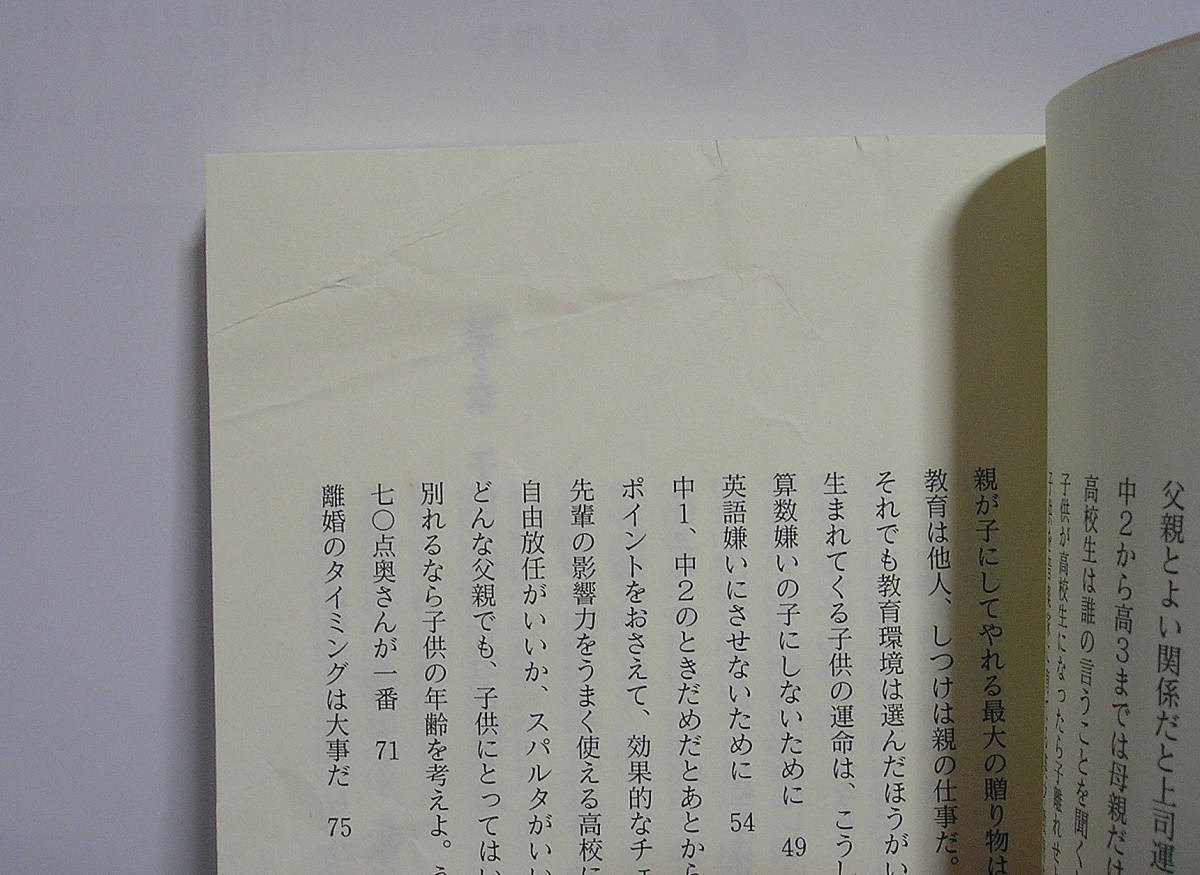 父親とよい関係だと上司運
中２から高３までは母親だけ
高校生は誰の言うことを聞く
子供が高校生になったら子離れせ
親が子にしてやれる最大の贈り物は
教育は他人、しつけは親の仕事だ。
それでも教育環境は選んだほうがい
生まれてくる子供の運命は、こうし
算数嫌いの子にしないために 49
英語嫌いにさせないために 54
中１、中２のときだめだとあとから
ポイントをおさえて、効果的なチェ
先輩の影響力をうまく使える高校に
自由放任がいいか、スパルタがいい
どんな父親でも、子供にとってはい
別れるなら子供の年齢を考えよ。う
七〇点奥さんが一番 71
離婚のタイミングは大事だ 75